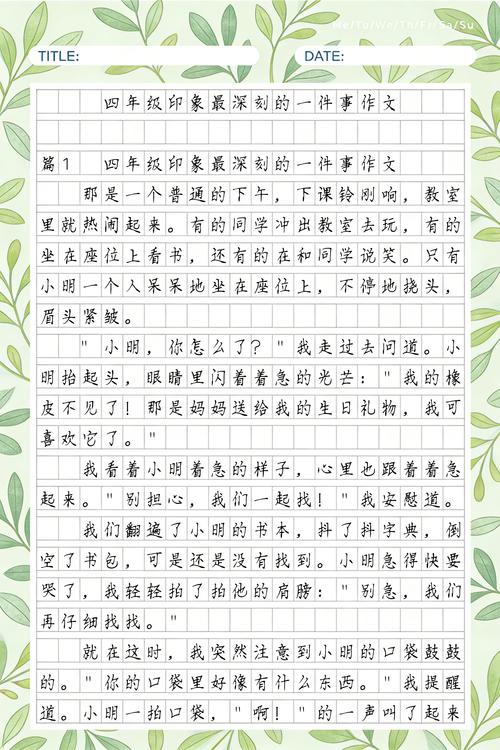 Me/Tu/We/Th/Fr/Sa/Su
TITLE: DATE:
四年级印象最深刻的一件事作文
篇1 四年级印象最深刻的一件事作文
那是一个普通的下午，下课铃刚响，教室
里就热闹起来。有的同学冲出教室去玩，有的
坐在座位上看书，还有的在和同学说笑。只有
小明一个人呆呆地坐在座位上，不停地挠头，
眉头紧皱。
"小明，你怎么了？"我走过去问道。小
明抬起头，眼睛里闪着着急的光芒："我的橡
皮不见了！那是妈妈送给我的生日礼物，我可
喜欢它了。"
我看着小明着急的样子，心里也跟着着急
起来。"别担心，我们一起找！"我安慰道。
我们翻遍了小明的书本，抖了抖字典，倒
空了书包，可是还是没有找到。小明急得快要
哭了，我轻轻拍了拍他的肩膀："别急，我们
再仔细找找。"
就在这时，我突然注意到小明的口袋鼓鼓
的。"你的口袋里好像有什么东西。"我提醒
道。小明一拍口袋，"啊！"的一声叫了起来